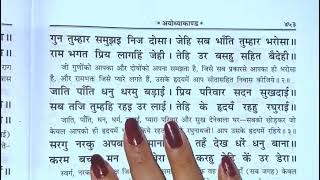 * अयोध्याकाण्ड * ४५३
गुन तुम्हार समुझइ निज दोसा। जेहि सब भाँति तुम्हार भरोसा॥
राम भगत प्रिय लागहिं जेही। तेहि उर बसहु सहित बैदेही॥
जो गुणोंको आपका और दोषोंको अपना समझता है, जिसे सब प्रकारसे आपका ही भरोसा है,
और रामभक्त जिसे प्यारे लगते हैं, उसके हृदयमें आप सीतासहित निवास कीजिये॥
जाति पाँति धनु धरमु बड़ाई। प्रिय परिवार सदन सुखदाई॥
सब तजि तुम्हहि रहइ उर लाई। तेहि के हृदयँ रहहु रघुराई॥
जाति, पाँति, धन, धर्म, सबको छोड़कर जो
केवल आपको ही हृदयमें हृदयमें रहिये॥
सरगु नरकु अपबरगु तहँ देख धरें धनु बाना॥
करम बचन मन करहु तेहि कें उर डेरा॥
स्वर्ग, नरक